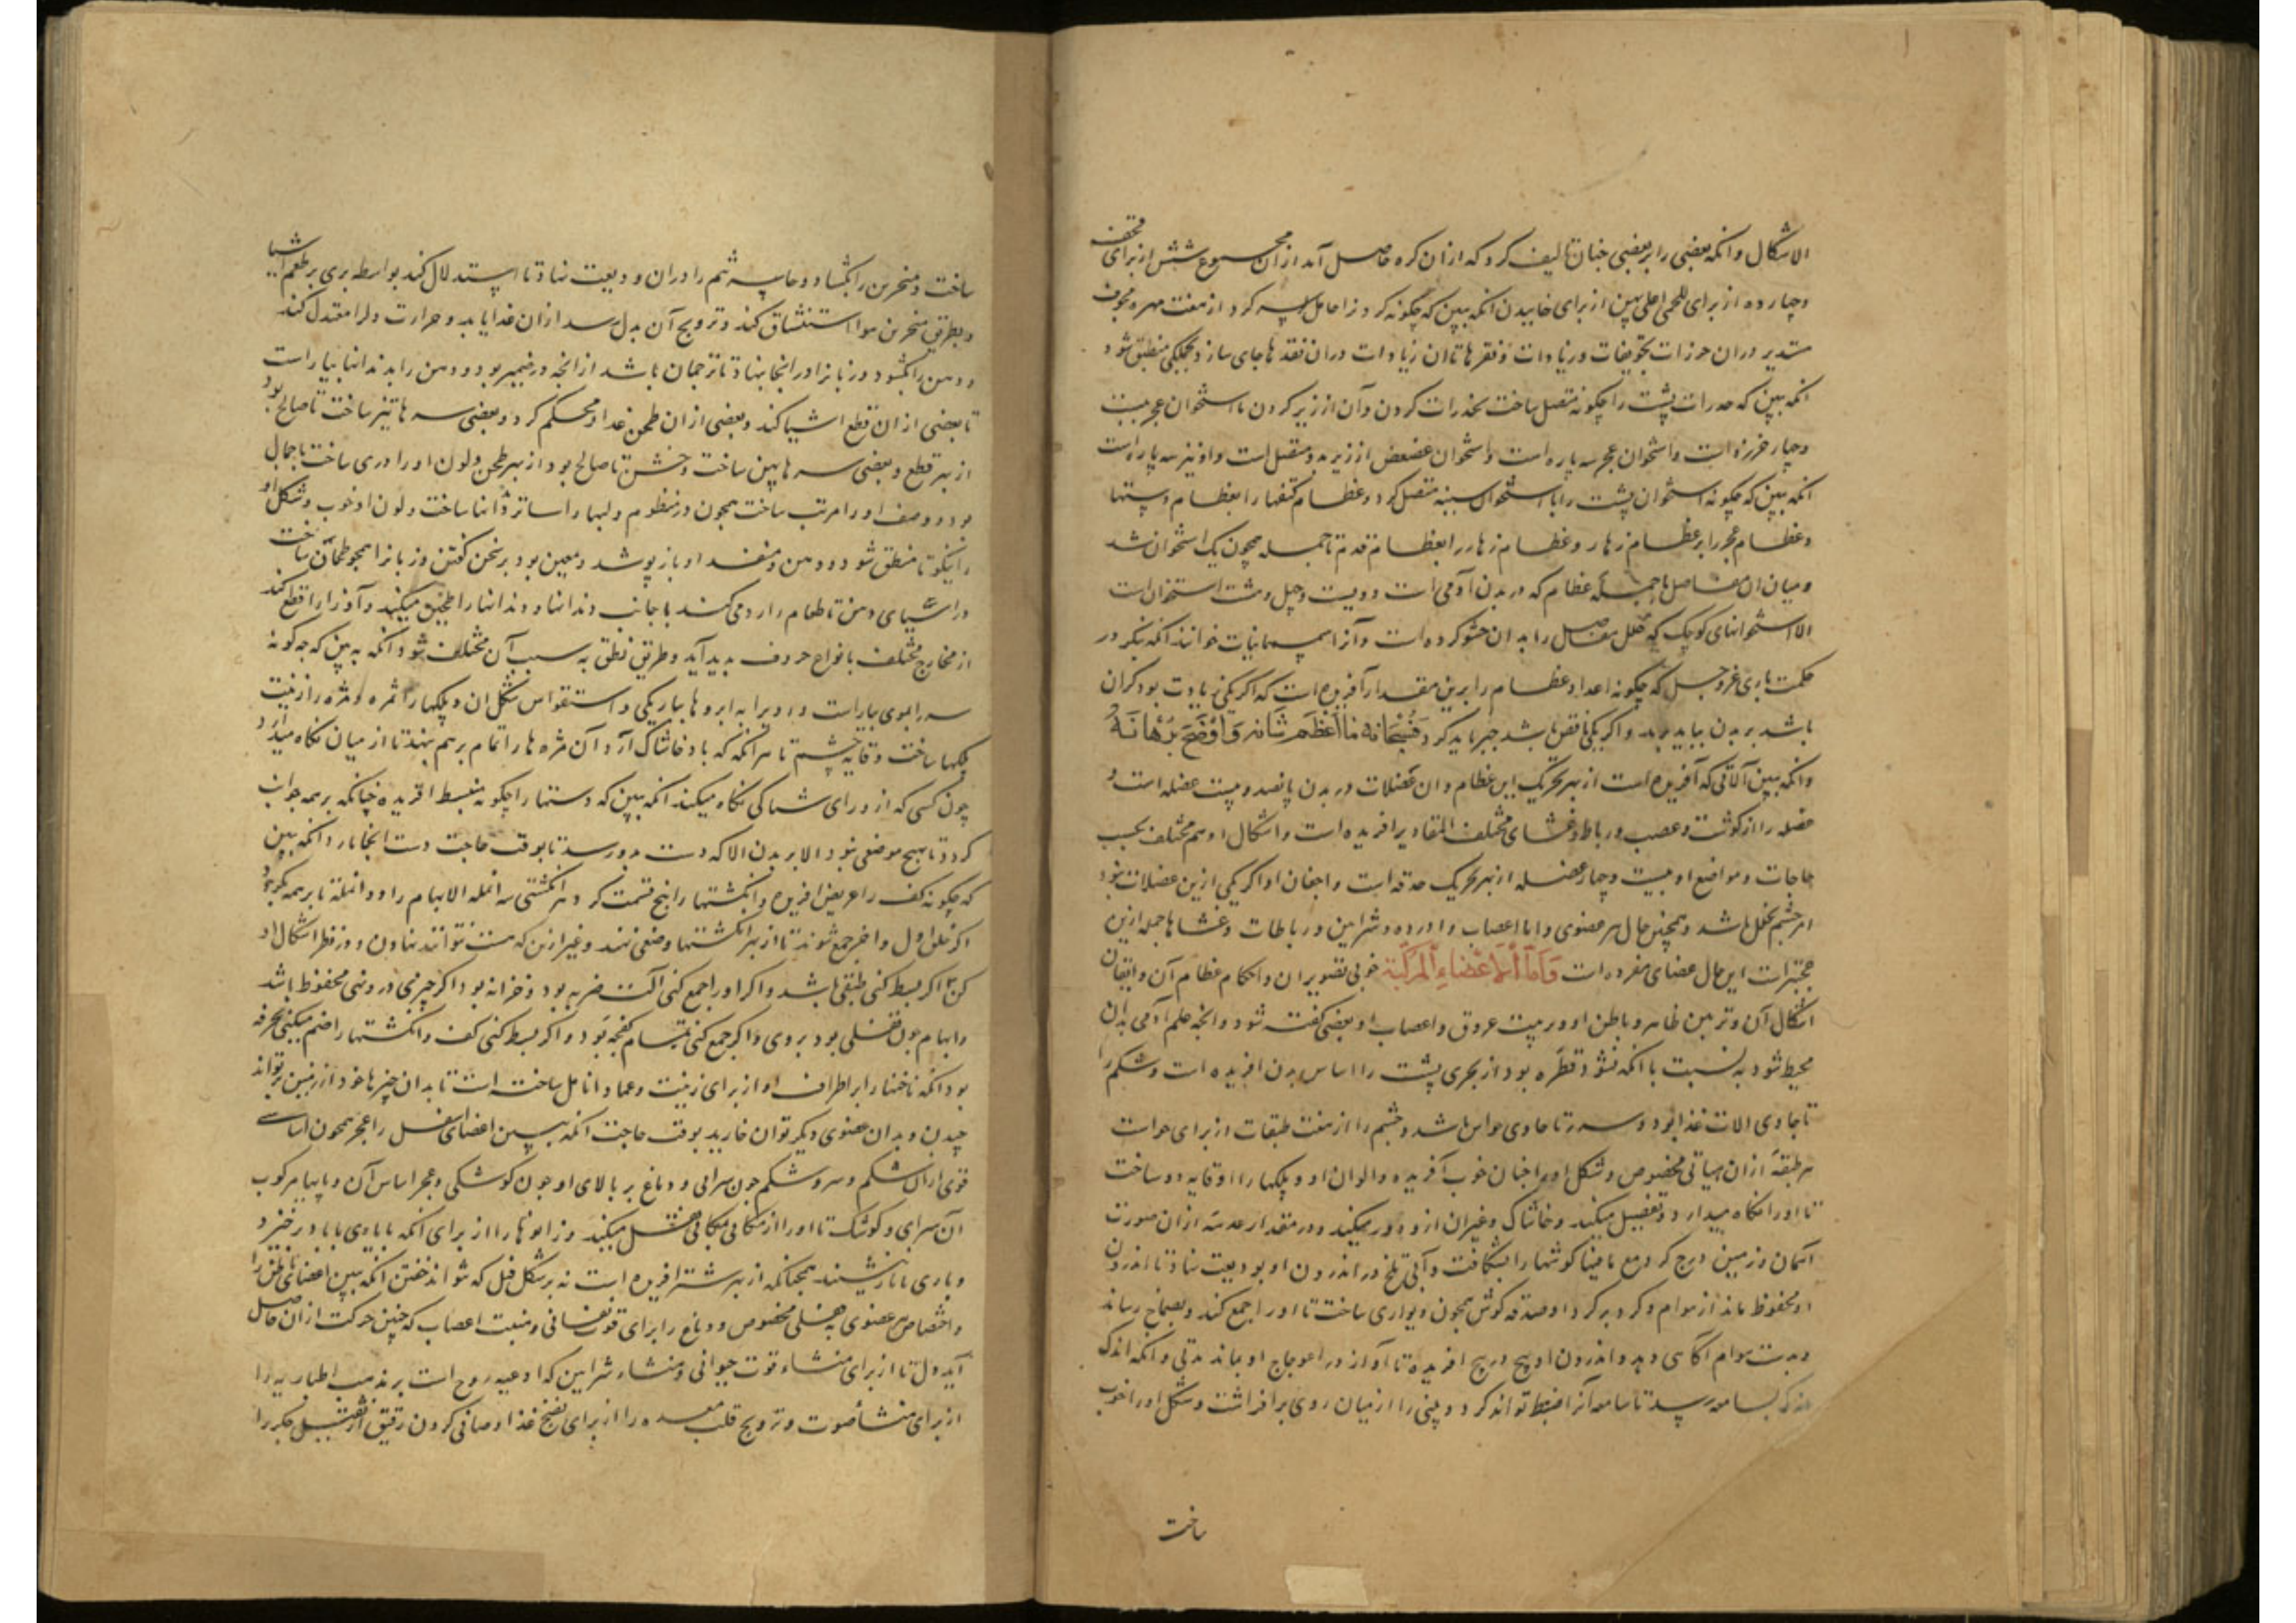 الاشکال وانکه بعضی را بر بعضی چنان تالیف کرد که ازان کره حاصل آمد ازان مجموع شش از برای قحف
وچهارده از برای لحی اعلی پهن از برای خاییدن انکه ببین که چگونه کرد از هفت مهره مجوف
مستدیر دران تجویفات وزیادات ونقرها تا ان زیادات دران نقرها جای سازد منطبق شود
انکه ببین که پشت را چگونه متصل ساخت کردن وآن از زیر کردن تا استخوان عجز بیست
وچهار خرزه است واستخوان عجز سه پاره است واستخوان عصعص از زیر بدو متصل است واو نیز سه پاره است
انکه ببین که چگونه استخوان پشت را با استخوان سینه متصل کرد وعظام کتفها را بعظام دستها
وعظام عجز را بر عظام زهار وعظام زهار را بعظام قدم تا جمله همچون یک استخوان شد
ومیان ان مفاصل ها جمله عظام که در بدن آدمی است دویست وچهل وهشت استخوان است
الا استخوانهای کوچک که خلل مفاصل را بدان حشو کرده است وآنرا سمسمانیات خوانند انکه بنگر در
حکمت باری عز وجل که چگونه اعداد عظام را برین مقدار آفریده است که اگر یکی زیادت بود گران
باشد بر بدن بباید برید واگر یکی ناقص باشد جبر باید کرد فسبحانه ما اعظم شانه واوضح برهانه
وانکه ببین آلاتی که آفریده است از بهر تحریک این عظام وان عضلات در بدن پانصد وبیست عضله است و
عضله را از گوشت وعصب ورباط وغشای مختلف المقادیر افریده است واشکال او هم مختلف بحسب
حاجات ومواضع او بیست وچهار عضله از بهر تحریک حدقه است واجفان او اگر یکی ازین عضلات نبود
امر چشم مختل باشد وهمچنین حال هر عضوی واما اعصاب واورده وشرایین ورباطات وغشاها جمله ازین
است این حال اعضای مفرده است واما الاعضاء المرکبة خوبی تصویر ان واحکام عظام آن واتقان
اشکال آن وتزیین ظاهر وباطن او وترتیب عروق واعصاب او بعضی گفته شود وانچه علم آدمی بدان
محیط شود به نسبت با انکه نشود قطره بود از بحری پشت را اساس بدن افریده است وشکم را
تا حاوی الات غذا بود وسر تا حاوی حواس باشد وچشم را از هفت طبقات از برای حواست
هر طبقه ازان هیاتی مخصوص وشکل او را چنان خوب آفریده والوان او وپلکها را وقایه او ساخت
تا او را نگاه میدارد وتصقیل میکند وخاشاک وغیران ازو دور میکند ودر مقدار عدسه ازان صورت
آسمان وزمین درج کرد گوشها را بشکافت وآبی تلخ در اندرون او بودیعت نهاد تا اندرون
او محفوظ ماند از هوام وگرد بر گرد او صدفه گوش همچون دیواری ساخت تا او را جمع کند وبصماخ رساند
هوام آگاهی دهد واندرون او پیچ در پیچ افریده تا آواز در اعوجاج او بماند مدتی وانکه اندک
اندک بسامعه رسد تا سامعه آنرا ضبط تواند کرد وبینی را از میان روی برافراشت وشکل او را خوب
ساخت
ساخت ومنخرین را بگشاد وحاسه شم را دران ودیعت نهاد تا استدلال کند بواسطه بوی بر طعم اشیا
وبطریق منخرین هوا استنشاق کند وترویح آن بدل رسد ازان غذا یابد وحرارت دلرا معتدل کند
ودهن را بگشود وزبانرا در انجا بنهاد تا ترجمان باشد از انچه در ضمیر بود ودهن را بدندانها بیاراست
تا بعضی ازان قطع اشیا کند وبعضی ازان طحن غذا ومحکم کرد وبعضی سرها تیز ساخت تا صالح بود
از بهر قطع وبعضی سرها پهن ساخت وخشن تا صالح بود از بهر طحن ولون او را دری ساخت با جمال
بود وصف او را مرتب ساخت همچون در منظوم ولبها را ساتر دندانها ساخت ولون او خوب وشکل او
را نیکو تا منطبق شود ودهن ومنفذ او باز پوشد ومعین بود بر سخن گفتن وزبانرا همچو طحان ساخت
در آسیای دهن تا طعام را رد می کند با جانب دندانها ودندانها را طحن میکنند وآوازرا قطع کند
از مخارج مختلف بانواع حروف پدید آید وطریق نطق به سبب آن مختلف شود انکه ببین که چه گونه
سر را بموی بیاراست وروی را به ابروها باریکی واستقواس شکل ان وپلکها را ثمره ومژه را زینت
پلکها ساخت وقایه چشم تا هر انکه که باد خاشاک آرد آن مژه ها را تمام بر هم نهند تا از میان نگاه میدارد
چون کسی که از ورای شباکی نگاه میکند انکه ببین که دستها را چگونه منبسط افریده چنانکه بر همه جوانب
گردد تا هیچ موضعی نبود الا بر بدن الا که دست بدو رسد تا بوقت حاجت دست انجا دارد انکه ببین
که چگونه کف را عریض افریده وانگشتها را پنج قسمت کرد هر انگشتی سه انمله الا ابهام را دو انمله تا بر همه بگردد
اگر خلق اول واخر جمع شوند تا از بهر انگشتها وضعی نهند وغیر ازین که هست نتوانند نهادن ودر نظر اشکال او
کن تا اگر بسط کنی طبقی باشد واگر او را جمع کنی آلت ضرب بود وخزانه بود اگر چیزی درو نهی محفوظ باشد
وابهام چون قفلی بود بروی واگر جمع کنی بتمام کفچه بود واگر بسط کنی کف وانگشتها را ضم میکنی مجرفه
بود انکه ناخنها را بر اطراف او از برای زینت وعماد انامل ساخته است تا بدان چیزها خرد از زمین تواند
چیدن وبدان عضوی دیگر توان خارید بوقت حاجت انکه ببین اعضای اسفل را عجز همچون اساسی
قوی ازان شکم وسر وشکم چون سرایی ودماغ بر بالای او چون کوشکی وعجز اساس آن وپایها مرکوب
آن سرای وکوشک تا او را از مکانی بمکانی نقل میکند وزانوها را از برای انکه تا بادی پا با بر خیزد و
وباری تا باز نشیند همچنانکه از بهر شتر افریده است نه بر شکل فیل که نتواند خفتن انکه ببین اعضای باطن را
واختصاص هر عضوی به فعلی مخصوص ودماغ را برای قوت نفسانی ومنبت اعصاب که چنین حرکت ازان حاصل
آید ودل تا از برای منشاء قوت حیوانی ومنشاء شرایین که اوعیه روح است بر مذهب اطبا وریه را
از برای منشأ صوت وترویح قلب ومعده را از برای نضج غذا وصافی کردن رقیق از ثقیل جگر را